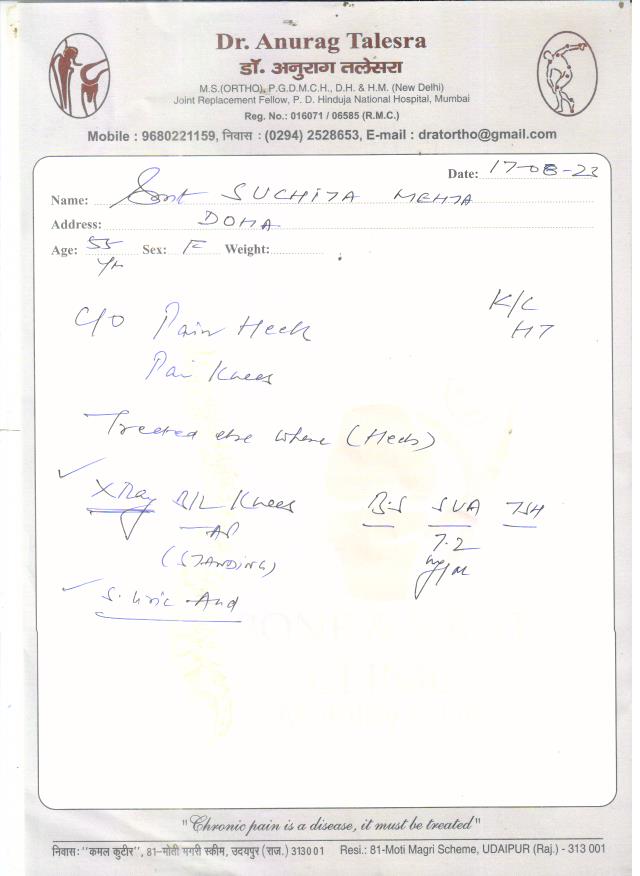 Dr. Anurag Talesra
डॉ. अनुराग तलेसरा
M.S.(ORTHO), P.G.D.M.C.H., D.H. & H.M. (New Delhi)
Joint Replacement Fellow, P. D. Hinduja National Hospital, Mumbai
Reg. No.: 016071 / 06585 (R.M.C.)
Mobile : 9680221159, निवास : (0294) 2528653, E-mail : dratortho@gmail.com
Date: 17-08-23
Name: Smt SUCHITA MEHTA
Address: DOHA
Age: 55 Yr Sex: F Weight:
C/O Pain Heel K/C
Pain Knees HT
Treated else where (Heels)
X Ray B/L Knees B.S SUA TSH
AP 7.2
(STANDING) mg/dl
S. Uric Acid
"Chronic pain is a disease, it must be treated"
निवास: "कमल कुटीर", 81-मोती मगरी स्कीम, उदयपुर (राज.) 313001 Resi.: 81-Moti Magri Scheme, UDAIPUR (Raj.) - 313 001